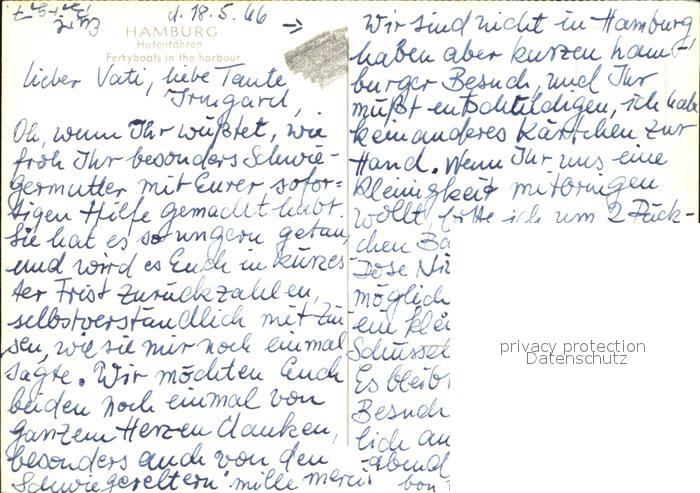 d. 18.5.66 →
HAMBURG
Hafenfähren
Ferryboats in the harbour
Lieber Vati, liebe Tante
Irmgard,
Oh, wenn Ihr wüßtet, wie
froh Ihr besonders Schwie-
germutter mit Eurer sofor=
tigen Hilfe gemacht habt.
Sie hat es so ungern getan,
und wird es Euch in kürzes-
ter Frist zurückzahlen,
selbstverständlich mit Zin-
sen, wie sie mir noch einmal
sagte. Wir möchten Euch
beiden noch einmal von
ganzem Herzen danken,
besonders auch von den
Schwiegereltern "mille mercis
Wir sind nicht in Hamburg
haben aber kurzen Ham-
burger Besuch, und Ihr
müßt entschuldigen, ich habe
kein anderes Kärtchen zur
Hand. Wenn Ihr uns eine
Kleinigkeit mitbringen
wollt bitte ich um 2 Päck-
chen Ba
Dose Ni
möglich
ein klei
Schüssel
Es bleibt
Besuch
lich an
abend
bon
privacy protection
Datenschutz